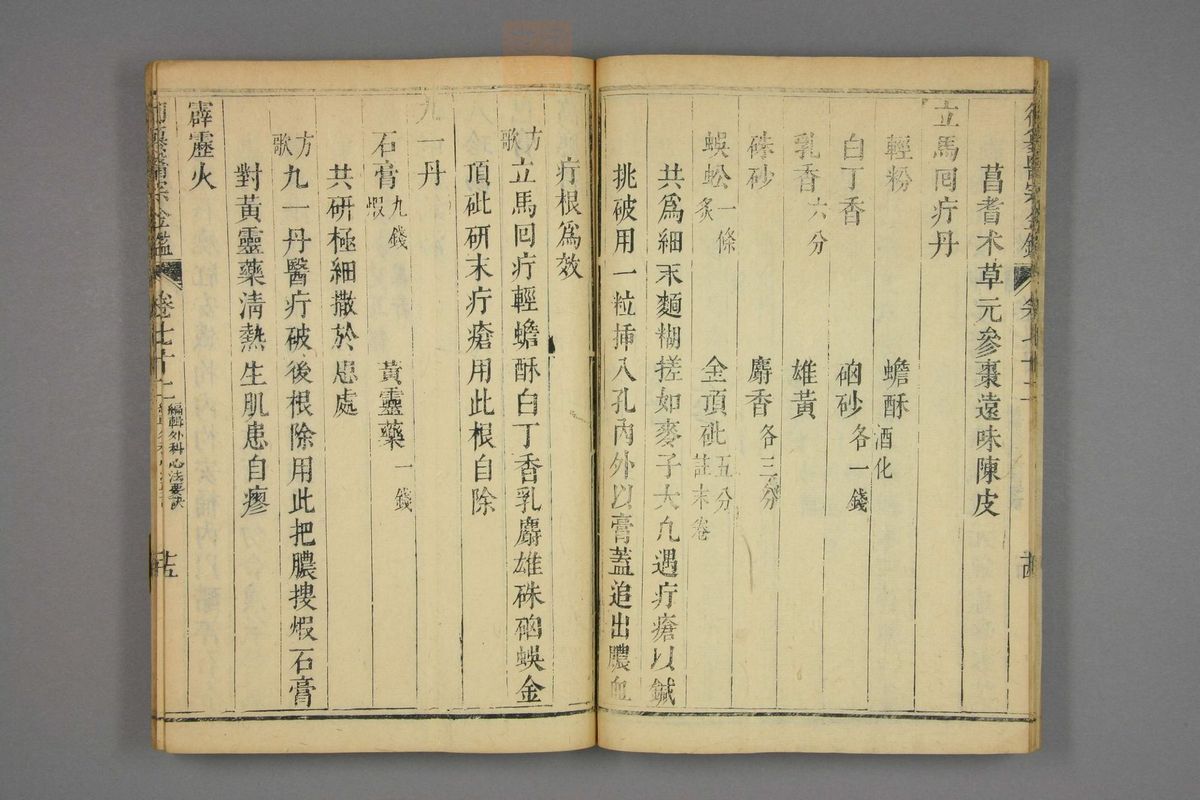 菖耆术草元參棗遠味陳皮
立馬囘疔丹
輕粉 蟾酥酒化
白丁香 硇砂各一錢
乳香六分 雄黃
硃砂 麝香各三分
蜈蚣一條炙 金頂砒五分註末卷
共爲細末麵糊搓如麥子大凢遇疔瘡以鍼
挑破用一粒挿入孔內外以膏蓋追出膿血
疔根爲效
方歌 立馬囘疔輕蟾酥白丁香乳麝雄硃硇蜈金
頂砒研末疔瘡用此根自除
九一丹
石膏九錢煆 黃靈藥一錢
共硏極細撒於患處
方歌 九一丹醫疔破後根除用此把膿摟煆石膏
對黃靈藥淸熱生肌患自瘳
霹靂火
卷七十二
編輯外科心法要訣
十五